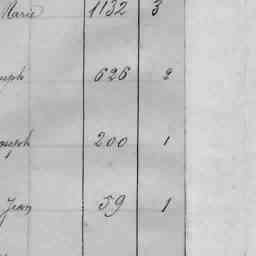 Marie 1132 3
seph 626 2
oseph 200 1
Jean 59 1